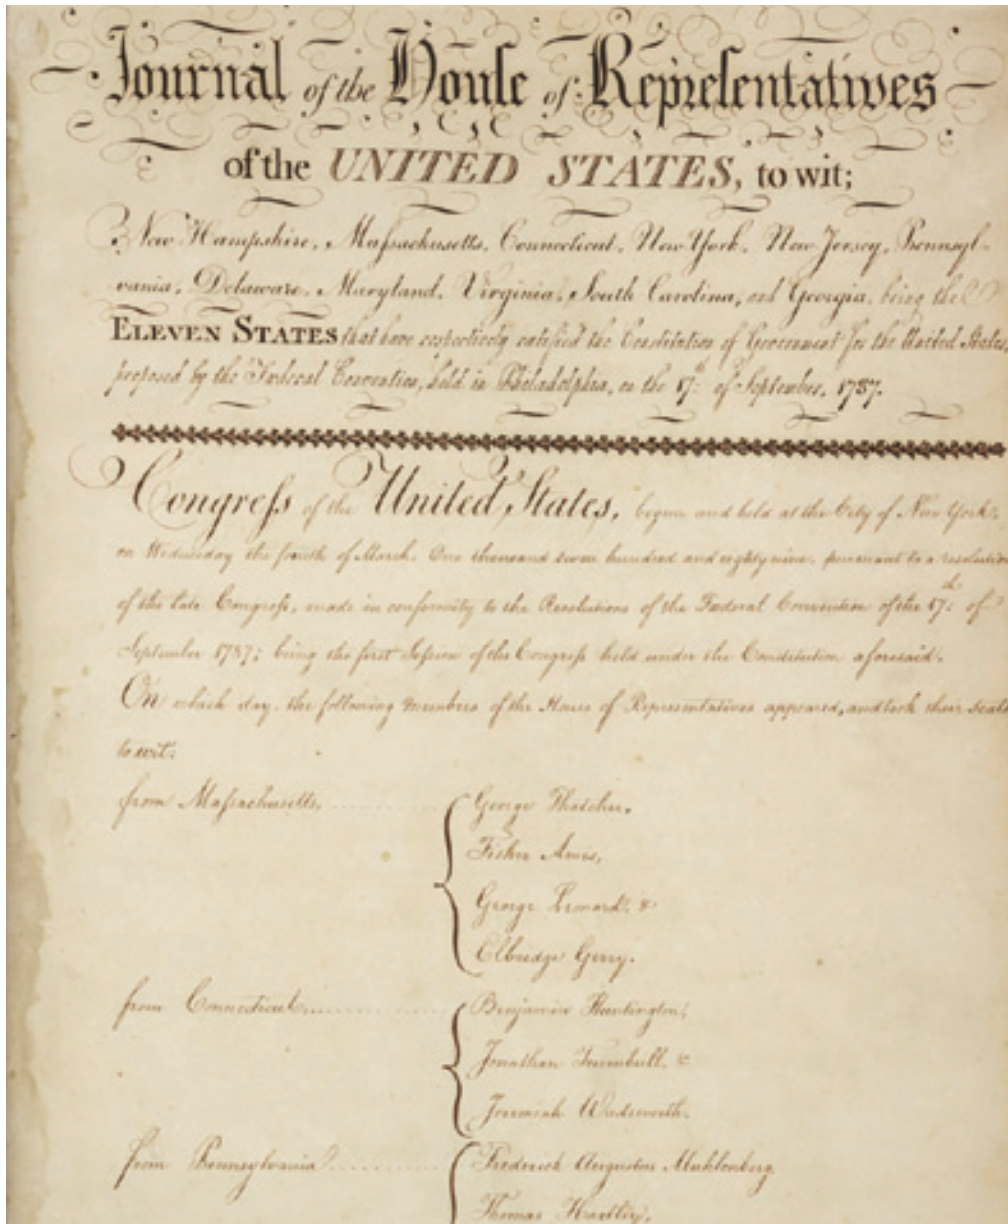 Journal of the House of Representatives
of the UNITED STATES, to wit;
New-Hampshire, Massachusetts, Connecticut, New-York, New-Jersey, Pennsyl-
vania, Delaware, Maryland, Virginia, South Carolina, and Georgia, being the
ELEVEN STATES that have respectively ratified the Constitution of Government for the United States,
proposed by the Federal Convention, held in Philadelphia, on the 17th of September, 1787.
Congress of the United States, begun and held at the City of New York,
on Wednesday the fourth of March, One thousand seven hundred and eighty nine, pursuant to a resolution
of the late Congress, made in conformity to the Resolutions of the Federal Convention of the 17th of
September 1787; being the first Session of the Congress held under the Constitution aforesaid.
On which day, the following members of the House of Representatives appeared, and took their seats
to wit;
from Massachusetts, George Thatcher,
Fisher Ames,
George Leonard, &
Elbridge Gerry.
from Connecticut, Benjamin Huntington,
Jonathan Trumbull, &
Jeremiah Wadsworth.
from Pennsylvania Frederick Augustus Muhlenberg
Thomas Hartley,